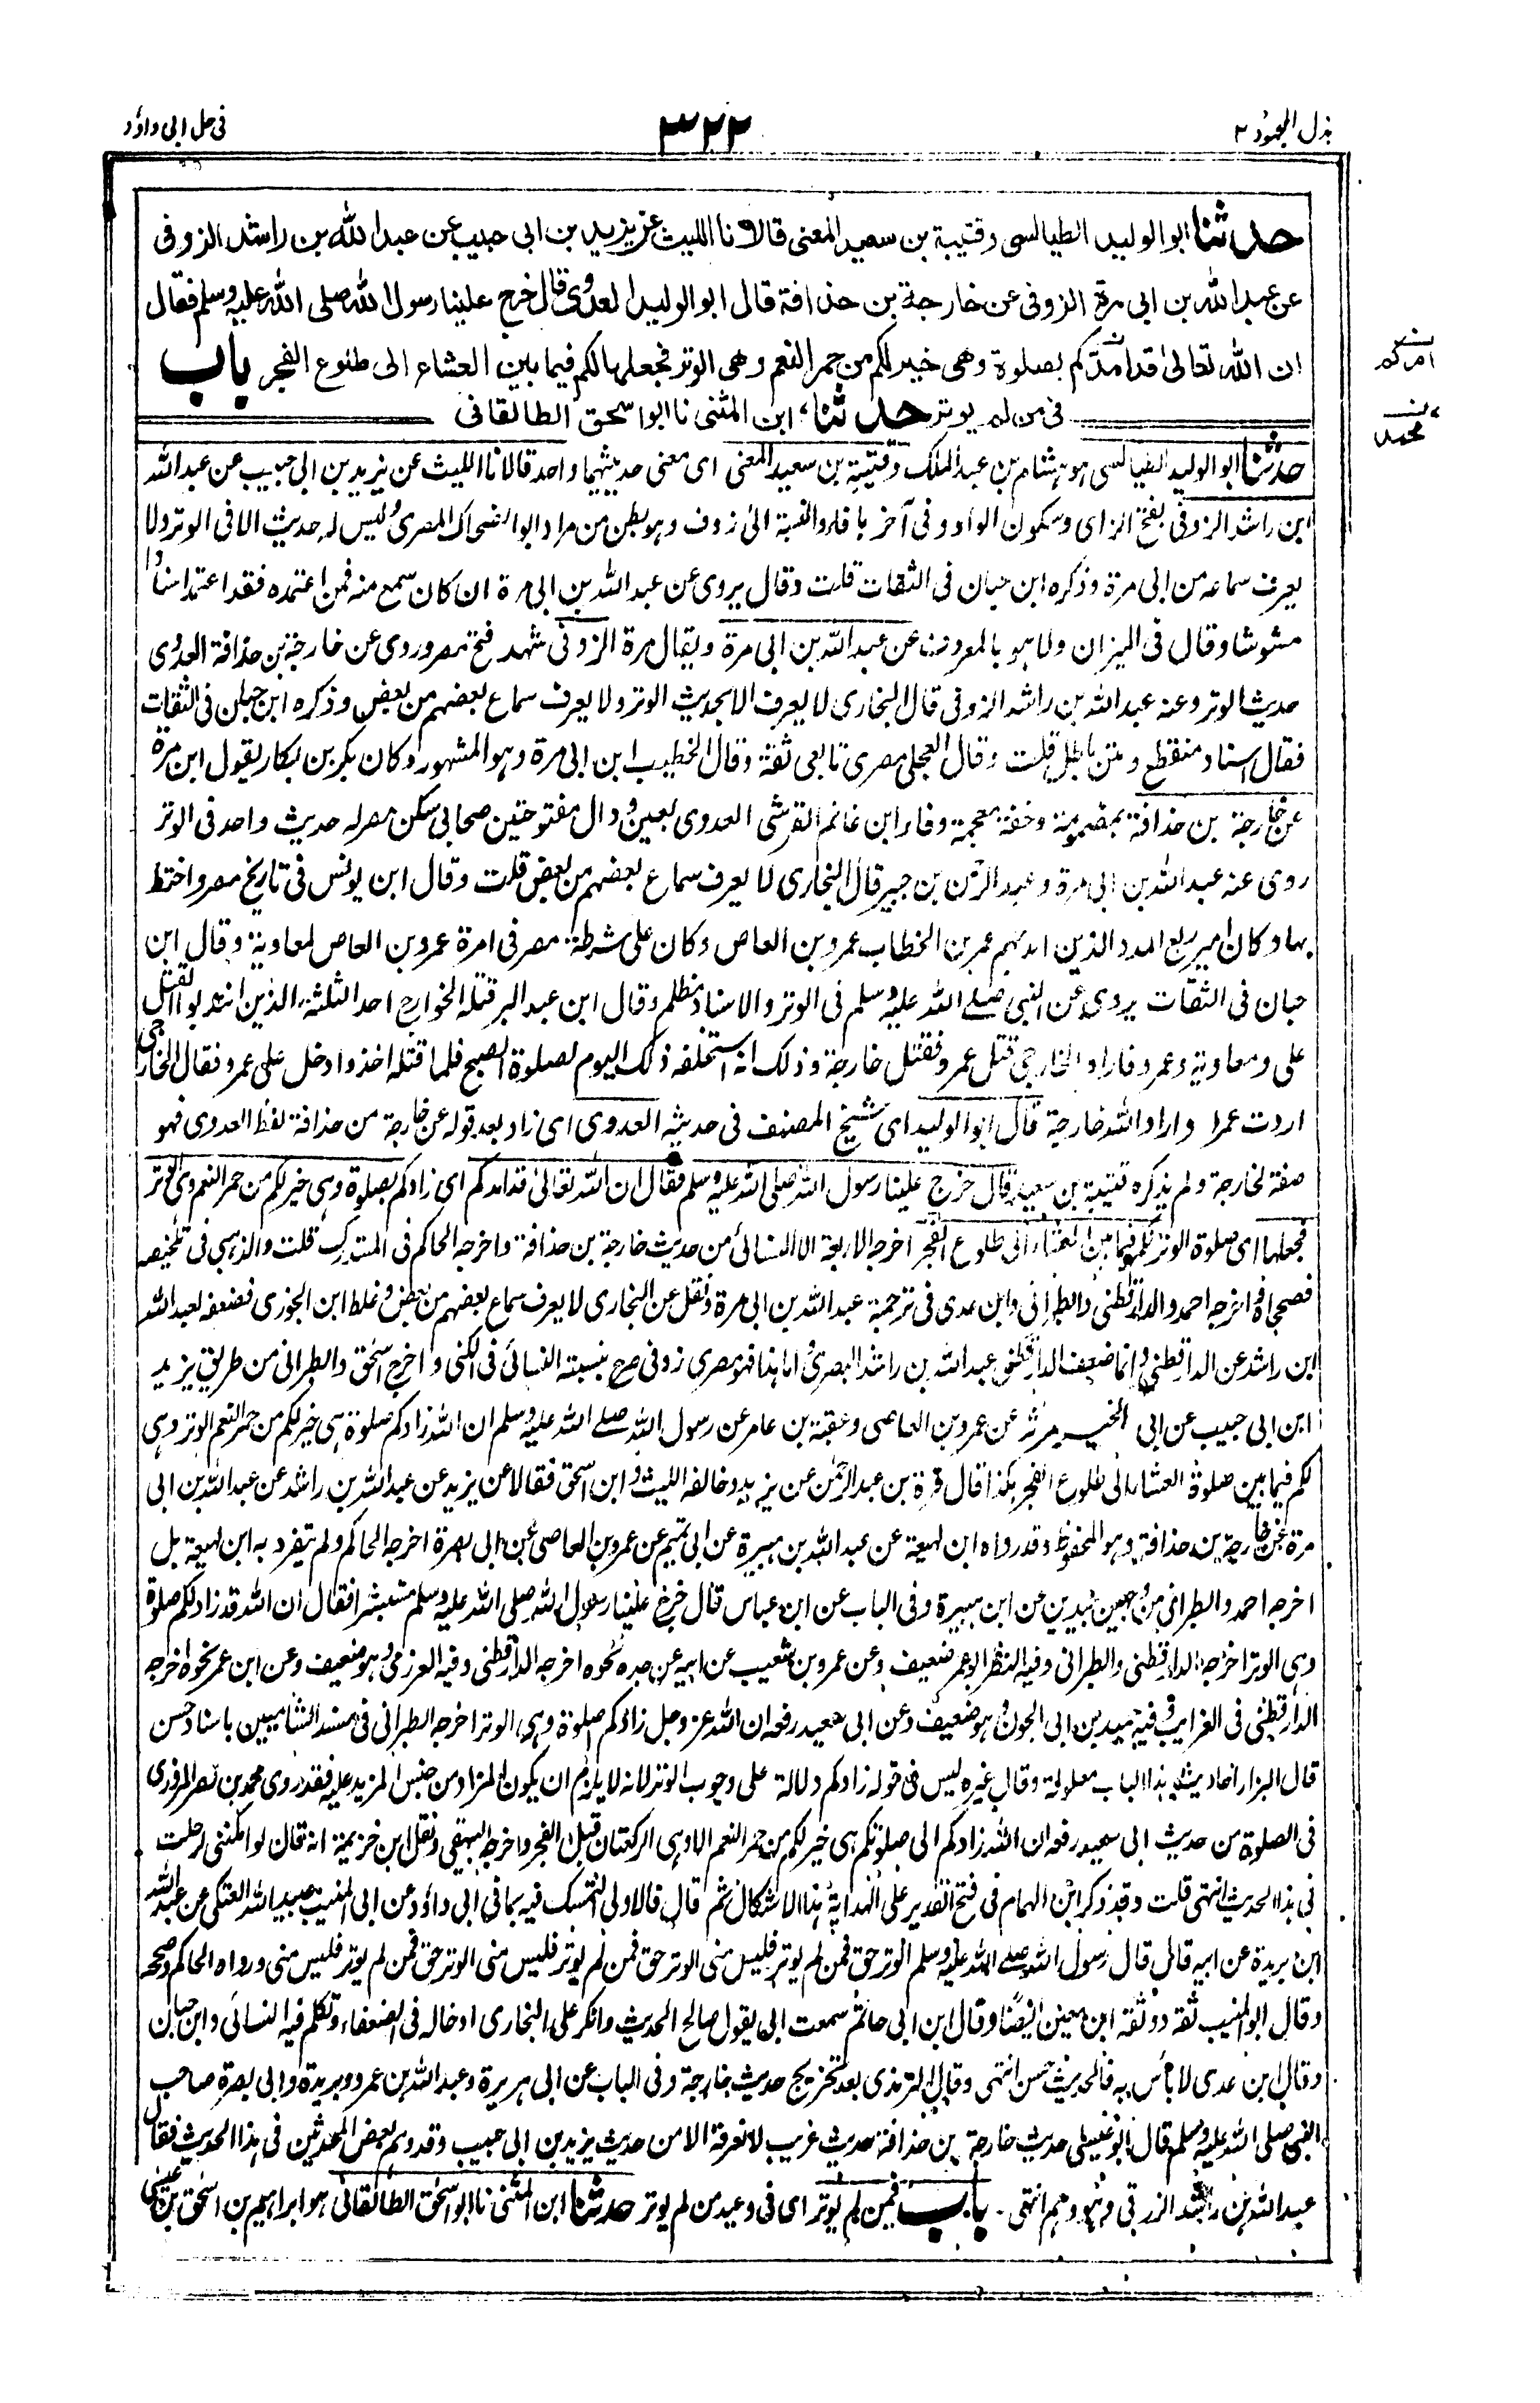 بذل المجهود ٢
٣٢٢
فى حل ابى داؤد
حدثنا ابو الوليد الطيالسى وقتيبة بن سعيد المعنى قالا نا الليث عن يزيد بن ابى حبيب عن عبد الله بن راشد الزوفى
عن عبد الله بن ابى مرة الزوفى عن خارجة بن حذافة قال ابو الوليد العدوى قال خرج علينا رسول الله صلى الله عليه وسلم فقال
ان الله تعالىٰ قد امدكم بصلوة وهى خير لكم من حمر النعم وهى الوتر فجعلها لكم فيما بين العشاء الى طلوع الفجر باب
فى من لم يوتر حدثنا ابن المثنى نا ابو اسحق الطالقانى
امركم
محمد
حدثنا ابو الوليد الطيالسى هو هشام بن عبد الملك وقتيبة بن سعيد المعنى اى معنى حديثهما واحد قالا نا الليث عن يزيد بن ابى حبيب عن عبد الله
ابن راشد الزوفى بفتح الزاى وسكون الواو وفى آخر با فاء والنسبة الى زوف وهو بطن من مراد ابو الضحاك المصرى وليس له حديث الا فى الوتر ولا
يعرف سماعه من ابى مرة وذكره ابن حبان فى الثقات قلت وقال يروى عن عبد الله بن ابى مرة ان كان سمع منه فمن اعتمده فقد اعتمد اسنادا
مشوشا وقال فى الميزان ولا هو بالمعروف عن عبد الله بن ابى مرة ويقال مرة الزوفى شهد فتح مصر وروى عن خارجة بن حذافة العدوى
حديث الوتر وعنه عبد الله بن راشد الزوفى قال البخارى لا يعرف الا بحديث الوتر ولا يعرف سماع بعضهم من بعض وذكره ابن حبان فى الثقات
فقال اسناد منقطع ومتن باطل قلت وقال العجلى مصرى تابعى ثقة وقال الخطيب ابن ابى مرة وهو المشهور وكان بكر بن بكار يقول ابن مرة
عن خارجة بن حذافة بمضمومة وخفة معجمة وفاء ابن غانم القرشى العدوى بعين ودال مفتوحتين صحابى سكن مصر له حديث واحد فى الوتر
روى عنه عبد الله بن ابى مرة وعبد الرحمن بن جبير قال البخارى لا يعرف سماع بعضهم من بعض قلت وقال ابن يونس فى تاريخ مصر واختط
بها وكان امير ربع المدد الذين امد بهم عمر بن الخطاب عمرو بن العاص وكان على شرطة مصر فى امرة عمرو بن العاص لمعاوية وقال ابن
حبان فى الثقات يروى عن النبى صلى الله عليه وسلم فى الوتر والاسناد مظلم وقال ابن عبد البر قتله الخوارج احد الثلثة الذين انتدبوا لقتل
على ومعاوية وعمرو فاراد الخارجى قتل عمرو فقتل خارجة وذلك انه استخلفه ذلك اليوم لصلوة الصبح فلما قتله اخذوا دخل على عمرو فقال الخارجى
اردت عمرا واراد الله خارجة قال ابو الوليد اى شيخ المصنف فى حديثه العدوى اى زاد بعد قوله عن خارجة من حذافة لفظ العدوى فهو
صفة لخارجة ولم يذكره قتيبة بن سعيد قال خرج علينا رسول الله صلى الله عليه وسلم فقال ان الله تعالىٰ قد امدكم اى زادكم بصلوة وهى خير لكم من حمر النعم وهى الوتر
فجعلها اى صلوة الوتر لكم فيما بين العشاء الى طلوع الفجر اخرجه الاربعة الا النسائى من حديث خارجة بن حذافة واخرجه الحاكم فى المستدرك قلت والذهبى فى تلخيصه
فصححاه اخرجه احمد والدارقطنى والطبرانى وابن عدى فى ترجمة عبد الله بن ابى مرة ونقل عن البخارى لا يعرف سماع بعضهم من بعض وغلط ابن الجوزى فضعفه لعبد الله
ابن راشد عن الدارقطنى وانما ضعيف الدارقطنى عبد الله بن راشد البصرى اما هذا فهو مصرى زوفى صرح بنسبته النسائى فى الكنى واخرج اسحق والطبرانى من طريق يزيد
ابن ابى حبيب عن ابى الخير مرثد عن عمرو بن العاصى وعقبة بن عامر عن رسول الله صلى الله عليه وسلم ان الله زادكم صلوة هى خير لكم من حمر النعم الوتر وهى
لكم فيما بين صلوة العشاء الى طلوع الفجر هكذا قال قرة بن عبد الرحمن عن يزيد وخالفه الليث وابن اسحق فقالا عن يزيد عن عبد الله بن راشد عن عبد الله بن ابى
مرة عن خارجة بن حذافة وهو المحفوظ وقد رواه ابن لهيعة عن عبد الله بن هبيرة عن ابى تميم عن عمرو بن العاصى عن ابى بصرة اخرجه الحاكم ولم يتفرد به ابن لهيعة بل
اخرجه احمد والطبرانى من وجهين جيدين عن ابن هبيرة وفى الباب عن ابن عباس قال خرج علينا رسول الله صلى الله عليه وسلم مستبشرا فقال ان الله قد زادكم صلوة
وهى الوتر اخرجه الدارقطنى والطبرانى وفيه النضر ابو عمر ضعيف وعن عمرو بن شعيب عن ابيه عن جده نحوه اخرجه الدارقطنى وفيه العرزمى وهو ضعيف وعن ابن عمر نحوه اخرجه
الدارقطنى فى الغرايب وفيه حميد بن ابى الجون وهو ضعيف وعن ابى سعيد رفعه ان الله عز وجل زادكم صلوة وهى الوتر اخرجه الطبرانى فى مسند الشاميين باسناد حسن
قال البزار احاديث هذا الباب معلولة وقال غيره ليس فى قوله زادكم دلالة على وجوب الوتر لانه لا يلزم ان يكون المزاد من جنس المزيد عليه فقد روى محمد بن نصر المروزى
فى الصلوة من حديث ابى سعيد رفعه ان الله زادكم الى صلوتكم هى خير لكم من حمر النعم الا وهى الركعتان قبل الفجر واخرجه البيهقى ونقل ابن خزيمة انه قال لو امكننى لرحلت
فى هذا الحديث انتهى قلت وقد ذكر ابن الهمام فى فتح القدير على الهداية هذا الاشكال ثم قال فالاولى التمسك فيه بما فى ابى داؤد عن ابى المنيب عبيد الله العتكى عن عبد الله
ابن بريدة عن ابيه قال قال رسول الله صلى الله عليه وسلم الوتر حق فمن لم يوتر فليس منى الوتر حق فمن لم يوتر فليس منى الوتر حق فمن لم يوتر فليس منى ورواه الحاكم وصححه
وقال ابو المنيب ثقة ووثقه ابن معين ايضًا وقال ابن ابى حاتم سمعت ابى يقول صالح الحديث وانكر على البخارى ادخاله فى الضعفاء وتكلم فيه النسائى وابن حبان
وقال ابن عدى لا بأس به فالحديث حسن انتهى وقال الترمذى بعد تخريج حديث خارجة وفى الباب عن ابى هريرة وعبد الله بن عمرو وبريدة وابى بصرة صاحب
النبى صلى الله عليه وسلم قال ابو عيسى حديث خارجة بن حذافة حديث غريب لا نعرفه الا من حديث يزيد بن ابى حبيب وقد وهم بعض المحدثين فى هذا الحديث فقال
عبد الله بن راشد الزرقى وهو وهم انتهى۔ باب فيمن لم يوتر اى فى وعيد من لم يوتر حدثنا ابن المثنى نا ابو اسحق الطالقانى هو ابراهيم بن اسحق بن عيسى